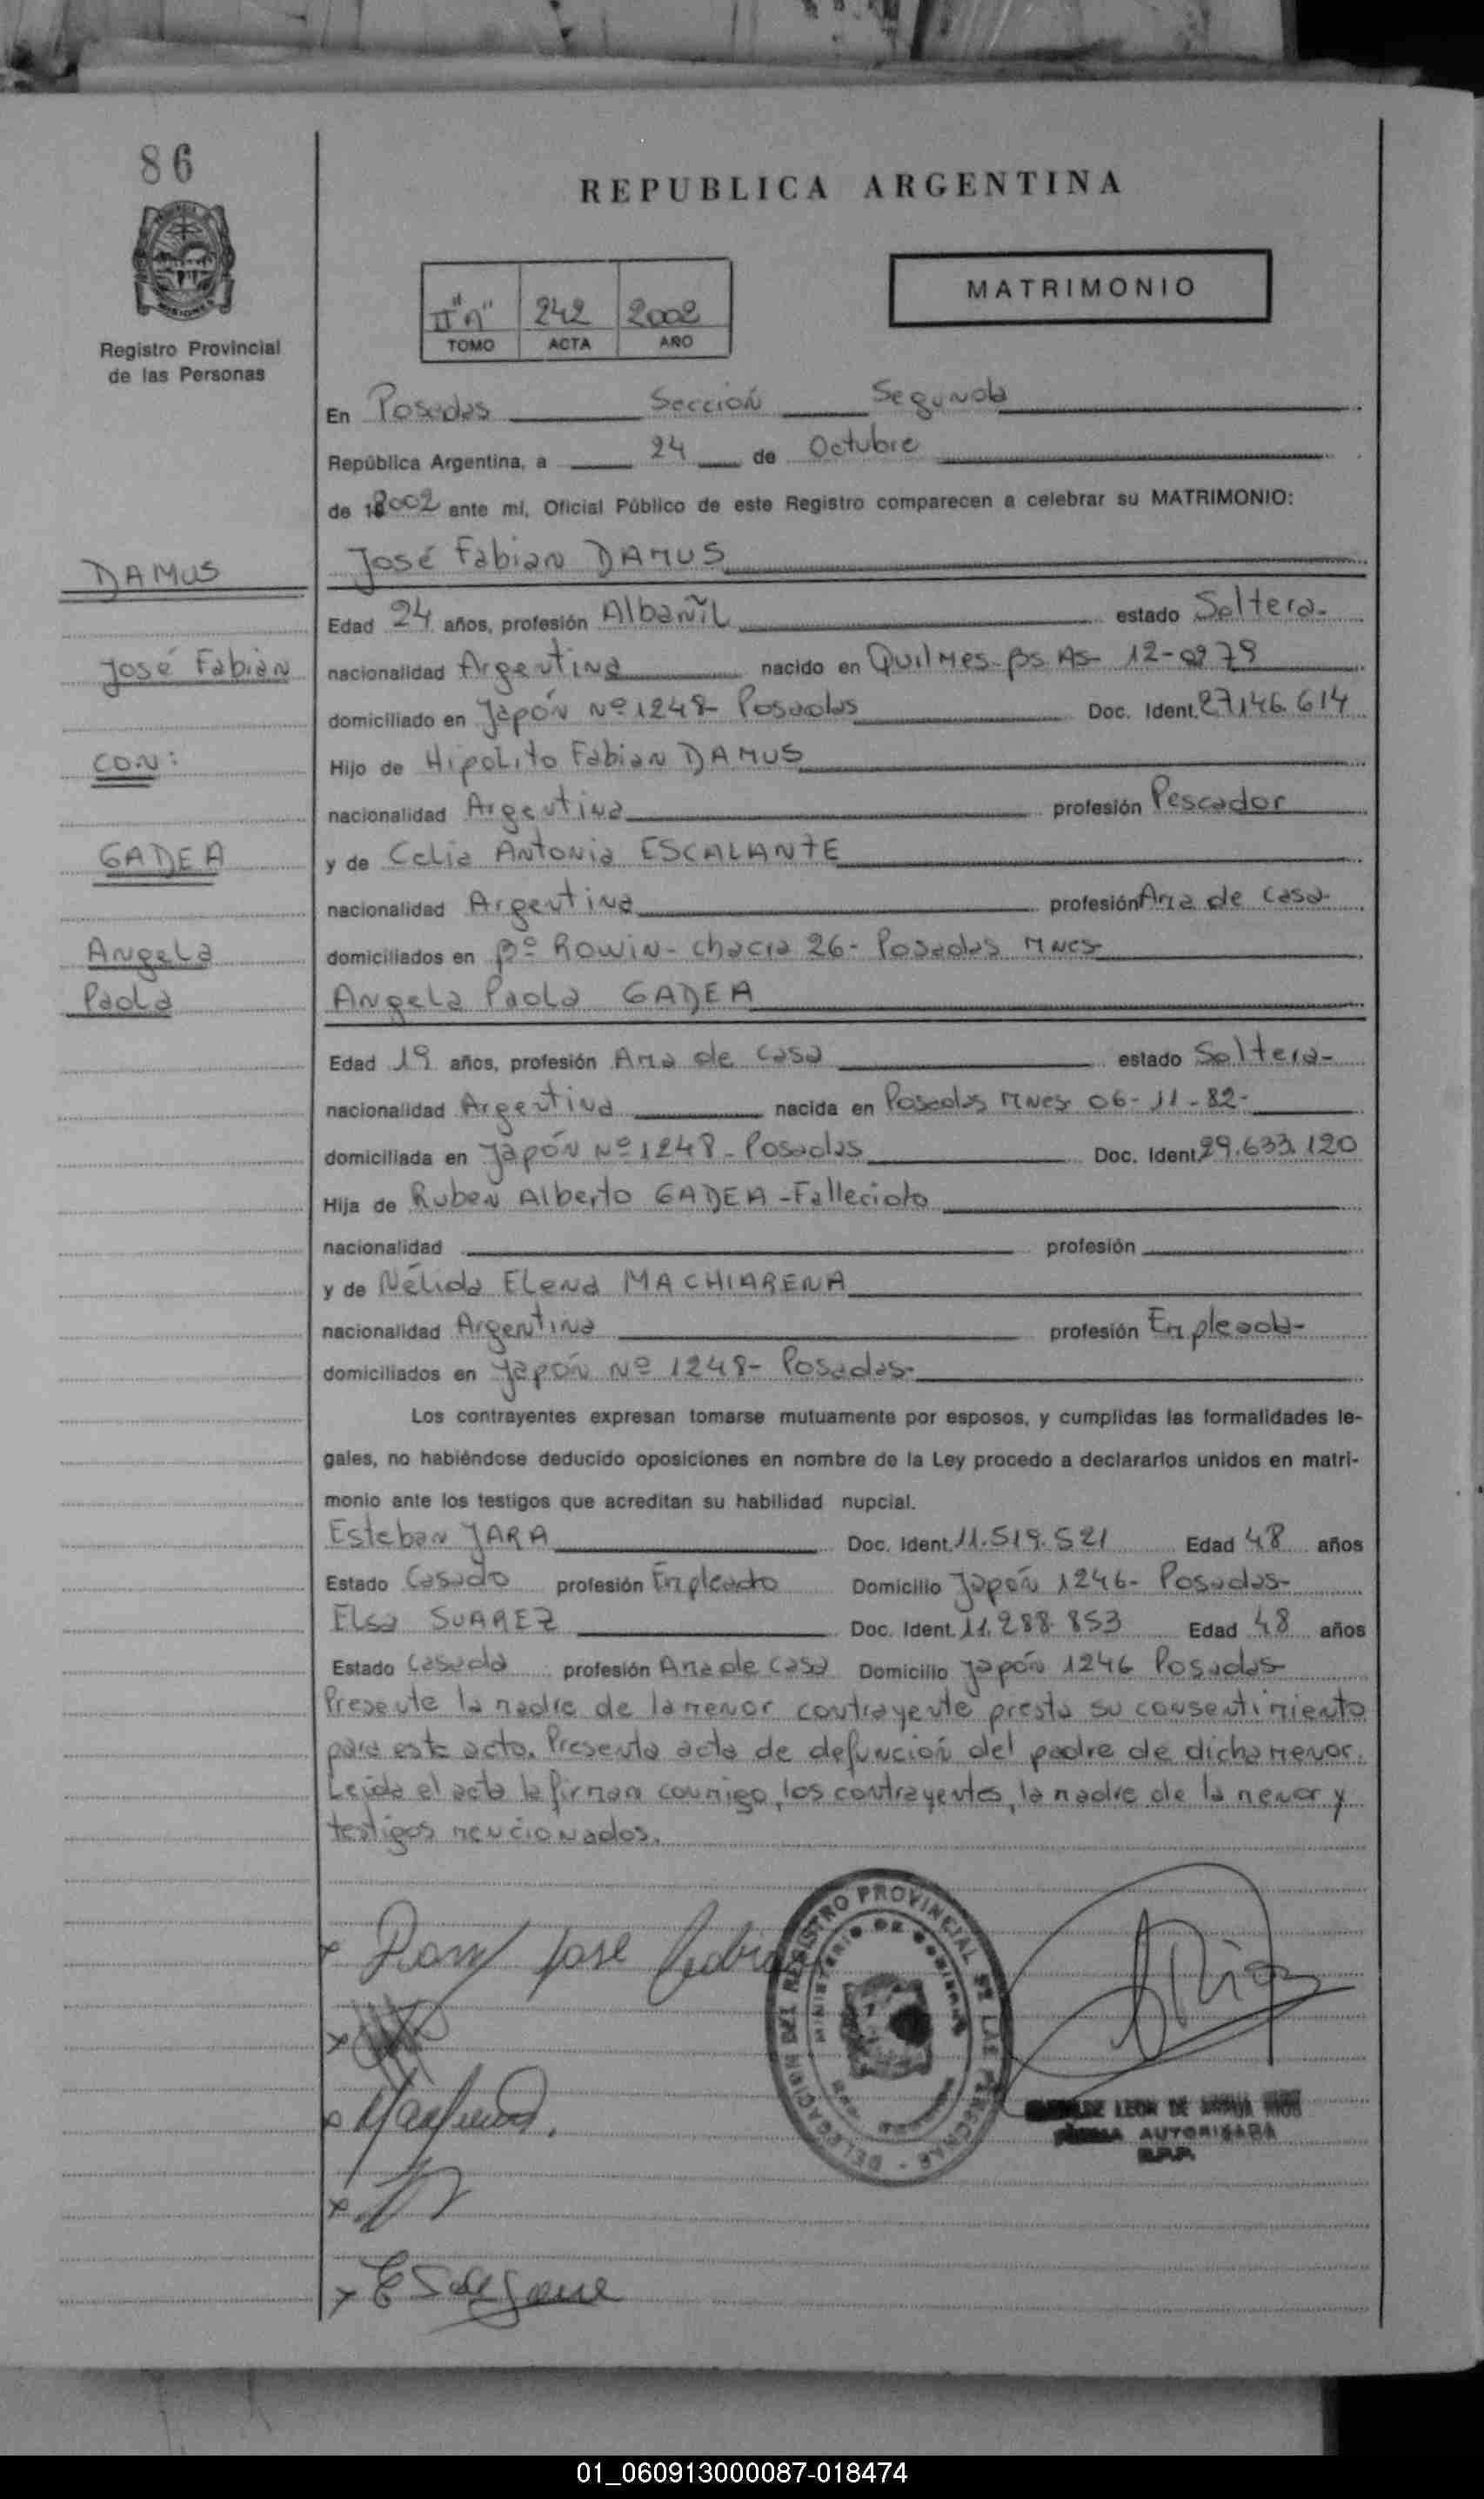 86
REPUBLICA ARGENTINA
MATRIMONIO
242 2002
TOMO ACTA AÑO
Registro Provincial
de las Personas
En Posadas Sección Segunda
República Argentina, a 24 de Octubre
de 2002 ante mí, Oficial Público de este Registro comparecen a celebrar su MATRIMONIO:
DAMUS
José Fabian DAMUS
Edad 24 años, profesión Albañil estado Soltero-
José Fabián
nacionalidad Argentina nacido en Quilmes-Bs As- 12-
domiciliado en Japón Nº 1248- Posadas Doc. Ident. 27.146.614
CON:
Hijo de Hipolito Fabian DAMUS
nacionalidad Argentina profesión Pescador
GADEA
y de Celia Antonia ESCALANTE
nacionalidad Argentina profesión Ama de casa-
Angela
domiciliados en Bº Rowin- chacra 26- Posadas Mnes-
Paola
Angela Paola GADEA
Edad 19 años, profesión Ama de casa estado Soltera-
nacionalidad Argentina nacida en Posadas Mnes- 06-11-82-
domiciliada en Japón Nº 1248- Posadas Doc. Ident. 29.633.120
Hija de Ruben Alberto GADEA -Fallecido
nacionalidad profesión
y de Nélida Elena MACHIARENA
nacionalidad Argentina profesión Empleada-
domiciliados en Japón Nº 1248- Posadas-
Los contrayentes expresan tomarse mutuamente por esposos, y cumplidas las formalidades le-
gales, no habiéndose deducido oposiciones en nombre de la Ley procedo a declararlos unidos en matri-
monio ante los testigos que acreditan su habilidad nupcial.
Esteban JARA Doc. Ident. 11.519.521 Edad 48 años
Estado Casado profesión Empleado Domicilio Japón 1246- Posadas-
Elsa SUAREZ Doc. Ident. 11.288.853 Edad 48 años
Estado Casada profesión Ama de casa Domicilio Japón 1246 Posadas-
Presente la madre de la menor contrayente presta su consentimiento
para este acto. Presenta acta de defunción del padre de dicha menor.
Leída el acta la firman conmigo, los contrayentes, la madre de la menor y
testigos mencionados.
DELEGACION DEL REGISTRO PROVINCIAL DE LAS PERSONAS
MINISTERIO DE GOBIERNO
LEON DE
FIRMA AUTORIZADA
R.P.P.
01_060913000087-018474